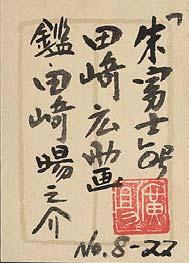 朱富士 6号
田崎広助画
鑑 田崎暘之介
廣暘
No. 8-22